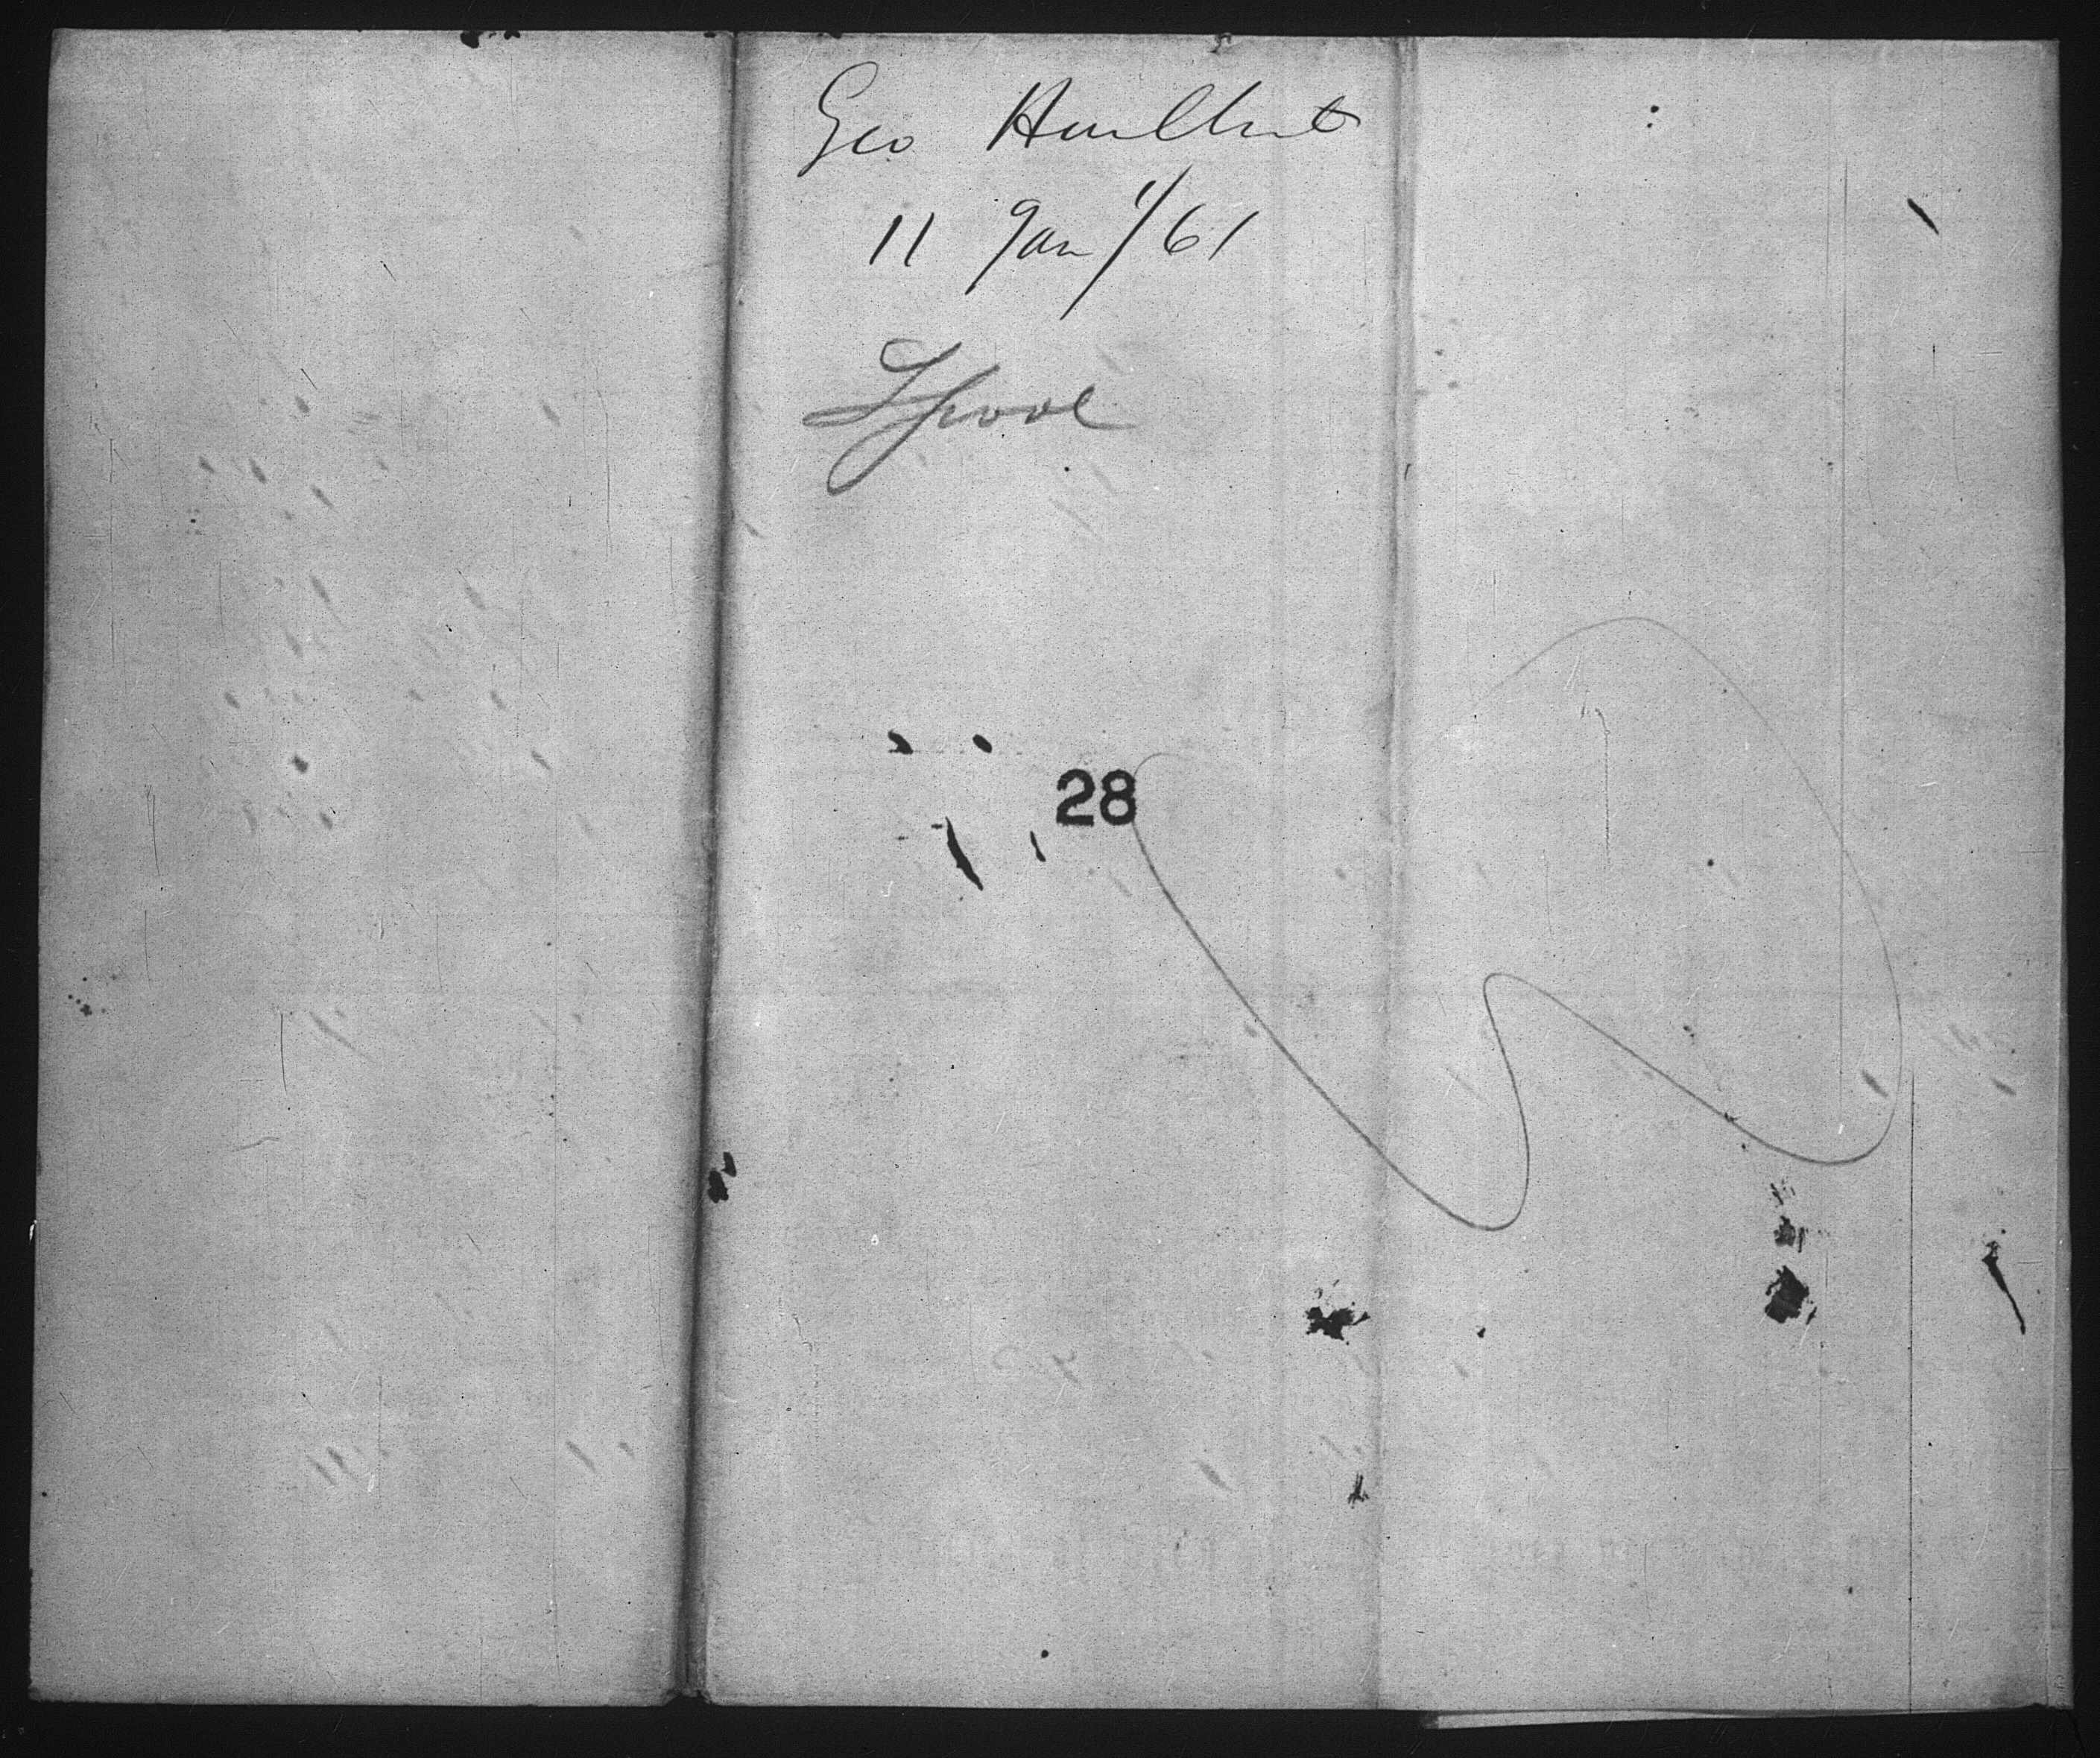 Geo Hurlbut
11 Jan'y/61
Lpool
28